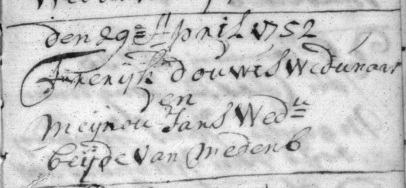 den 29e April 1752
Frerijk Douwes Wedunaar
en
Meijnou Jans Wedu
beijde van Medenb